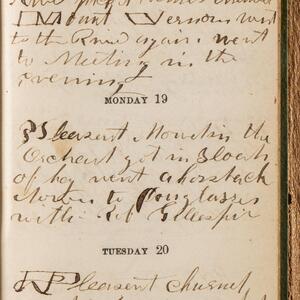 Mount Vernon went
to the River again went
to Meeting in the
evening
MONDAY 19
Pleasent Mowed in the
Orchard got in 3 loads
of hay went a horseback
to Douglasses
with Gillespie
TUESDAY 20
Pleasent churned